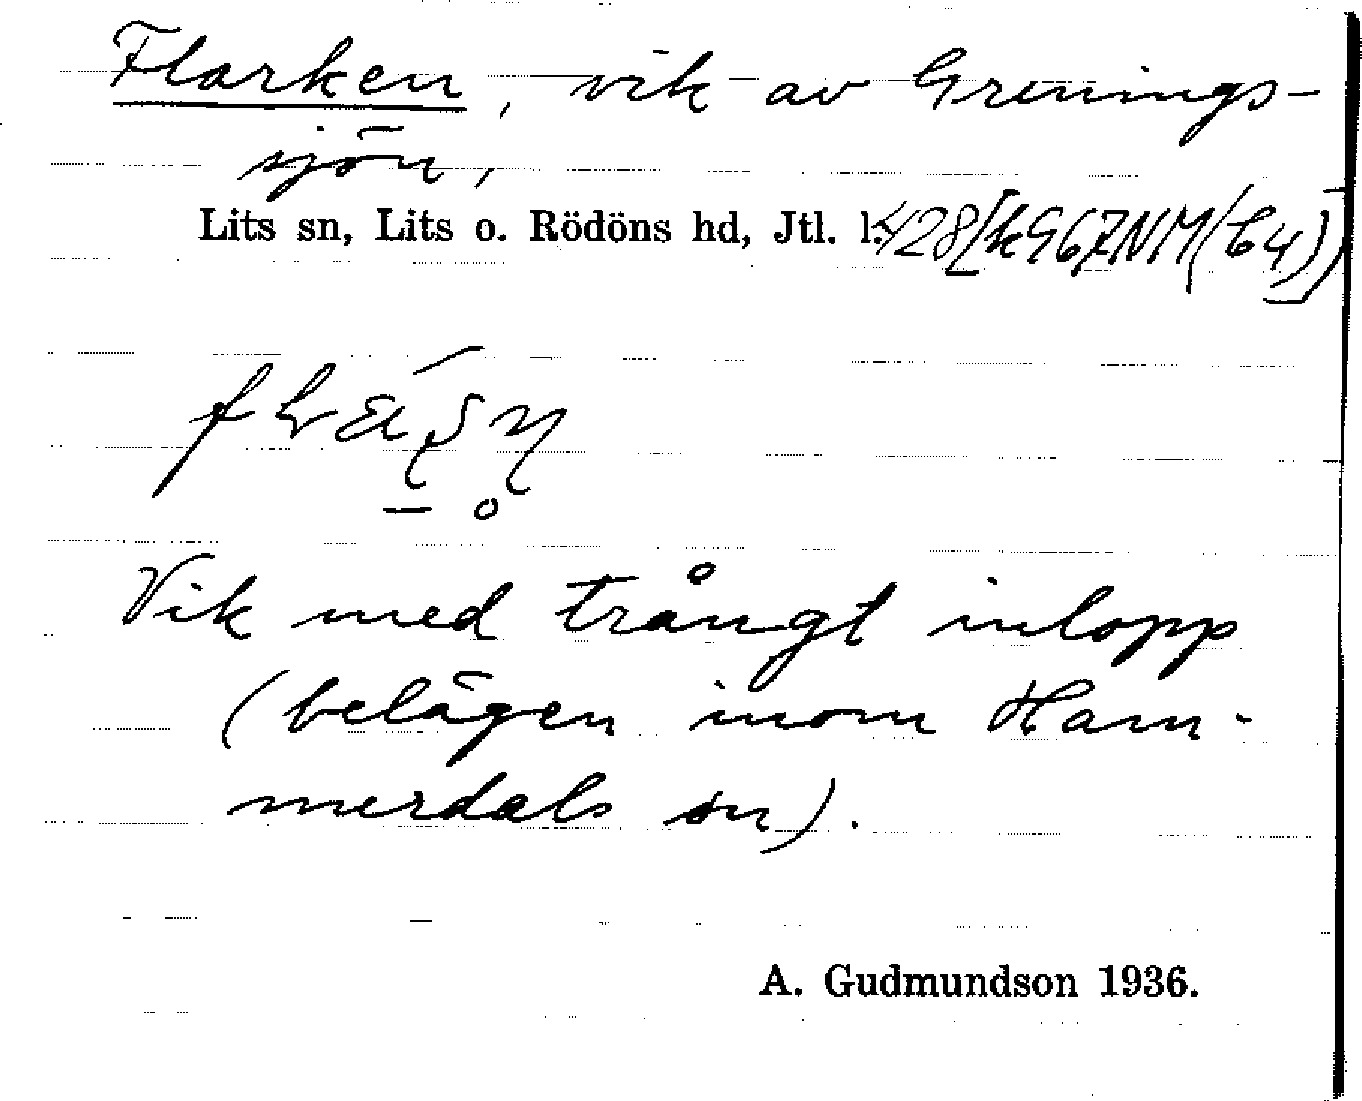 Flarken, vik av Grenings-
sjön,
Lits sn, Lits o. Rödöns hd, Jtl. l.
Vik med trångt inlopp
(belägen inom Ham-
merdals sn).
A. Gudmundson 1936.